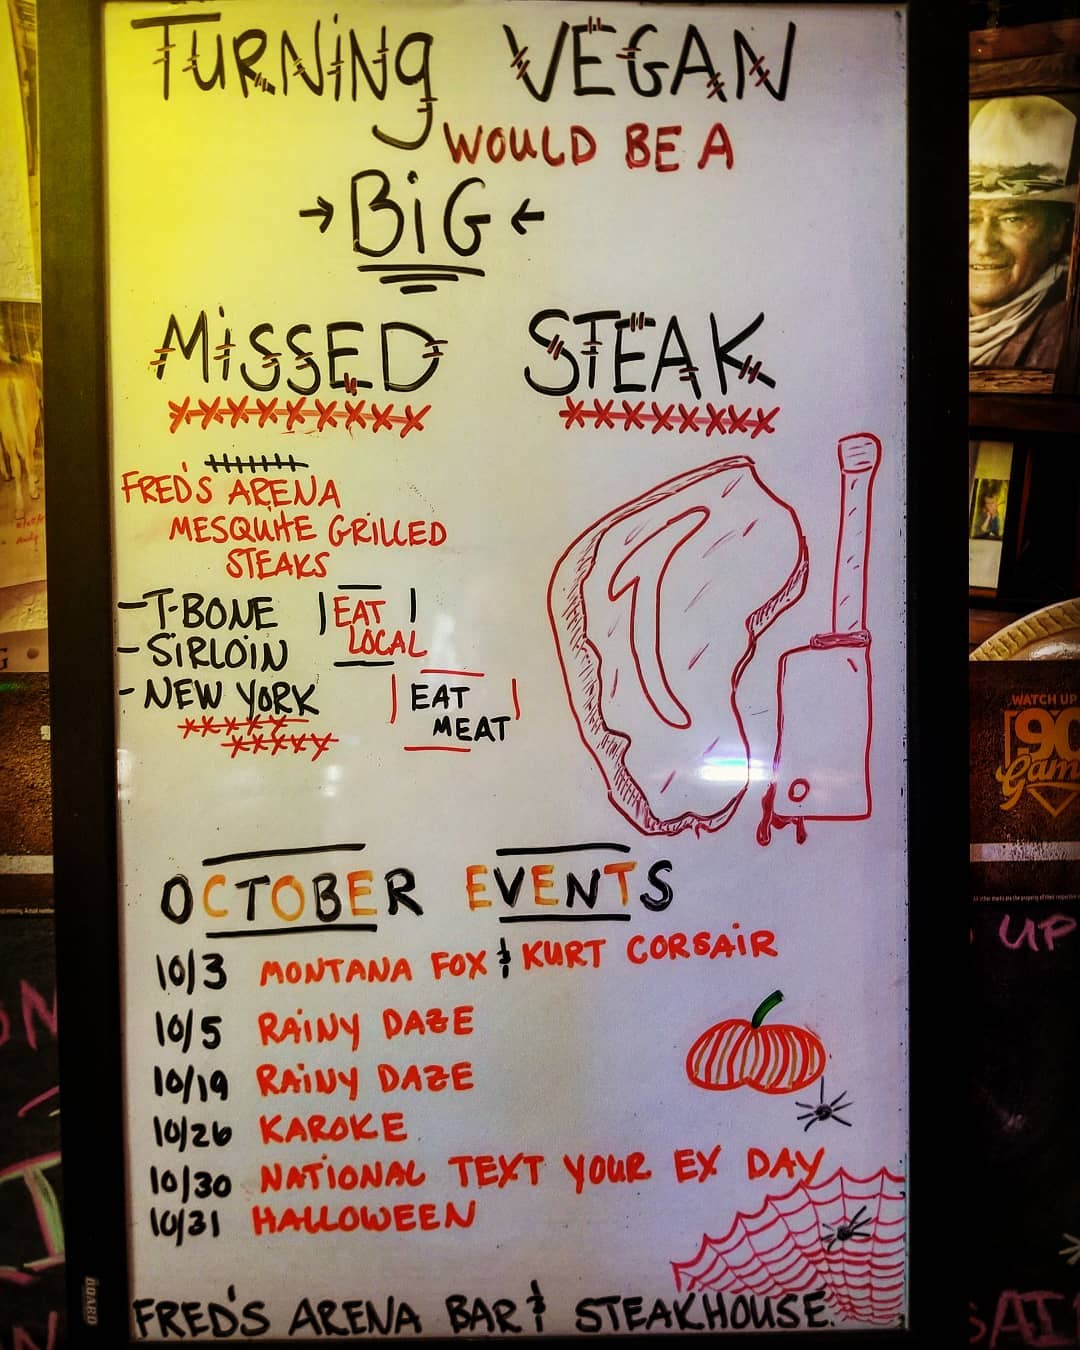 TURNiNg VEGAN
WOULD BE A
→ BiG ←
MiSSED STEAK
XXXXXXXXX XXXXXXXX
FRED'S ARENA
MESQUITE GRILLED
STEAKS
- T-BONE
- SiRLOiN
- NEW YORK
EAT
LOCAL
EAT
MEAT
OCTOBER EVENTS
10/3 MONTANA FOX & KURT CORSAiR
10/5 RAiNY DAZE
10/19 RAiNY DAZE
10/26 KAROKE
10/30 NATiONAL TEXT YOUR EX DAY
10/31 HALLOWEEN
FRED'S ARENA BAR & STEAKHOUSE.
BOARD
WATCH UP
90
Gam
UP